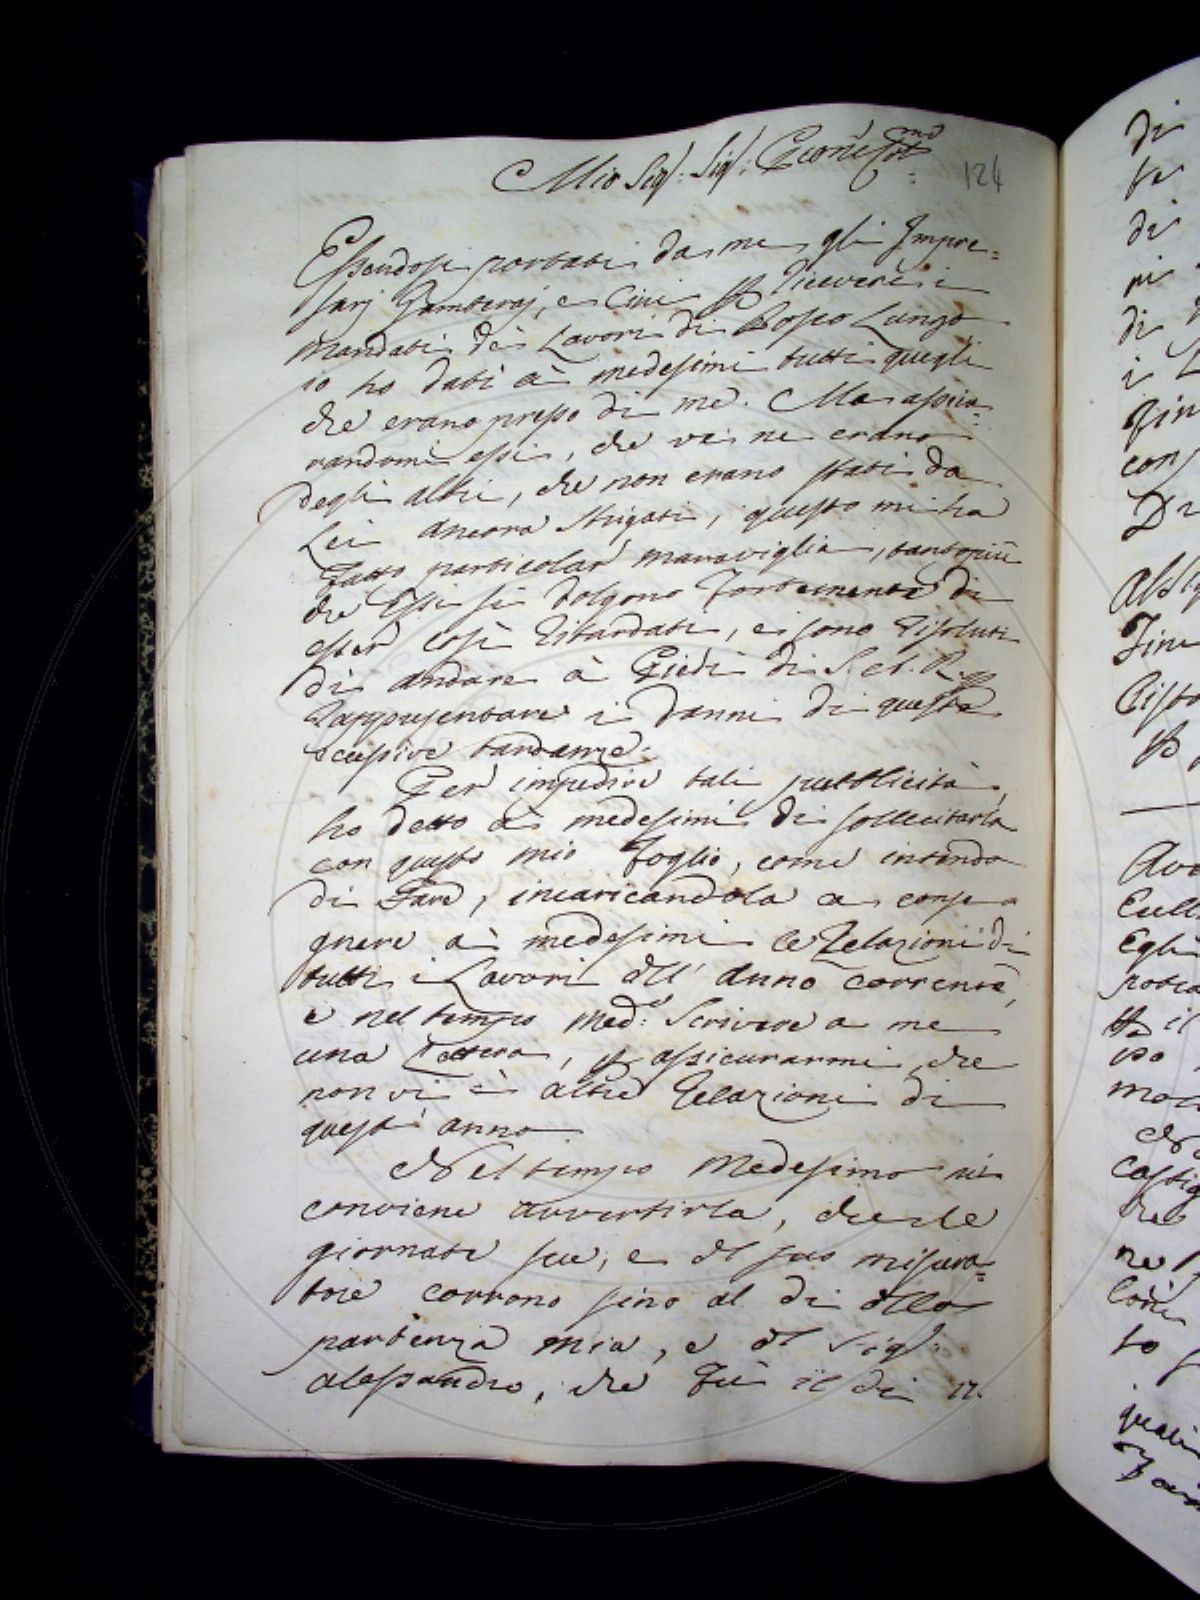 Mio Sig.: Sig.: Pron̄e Col.mo
124
Essendosi portati da me gli Impre=
sarj Zamberaj, e Cini p ricevere i
Mandati de Lavori di Bosco Lungo
io ho dati à medesimi tutti quegli
che erano presso di me. Ma assicu=
randomi essi, che vi ne erano
degli altri, che non erano stati da
Lei ancora Strigati, questo mi ha
fatto particolar maraviglia, tantopiù
che Essi si dolgono fortemente di
esser così ritardati, e sono risoluti
di andare à Piedi di S. A. R. p
rappresentare i danni di queste
eccessive tardanze.
Per impedire tali pubblicità,
ho detto à medesimi di sollecitarla
con questo mio foglio, come intendo
di fare, incaricandola a conse
gnare à medesimi le Relazioni di
tutti i Lavori dell' anno corrente,
e nel tempo med.o Scrivere a me
una Lettera, p assicurarmi che
non vi è altre Relazioni di
quest' anno.
Nel tempo Medesimo mi
conviene avvertirla, che le
giornate sue, e del suo misura=
tore corrono sino al dì della
partenza mia, e del Sig.
Alessandro, che fù il dì 17.